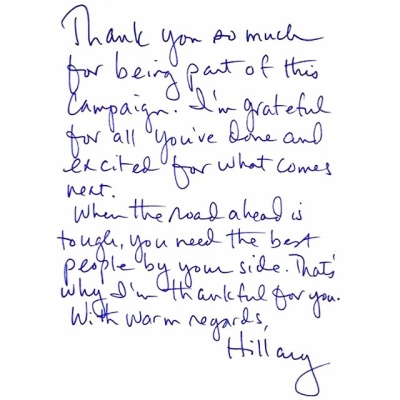 Thank you so much
for being part of this
campaign. I'm grateful
for all you've done and
excited for what comes
next.
When the road ahead is
tough, you need the best
people by your side. That's
why I'm thankful for you.
With warm regards,
Hillary